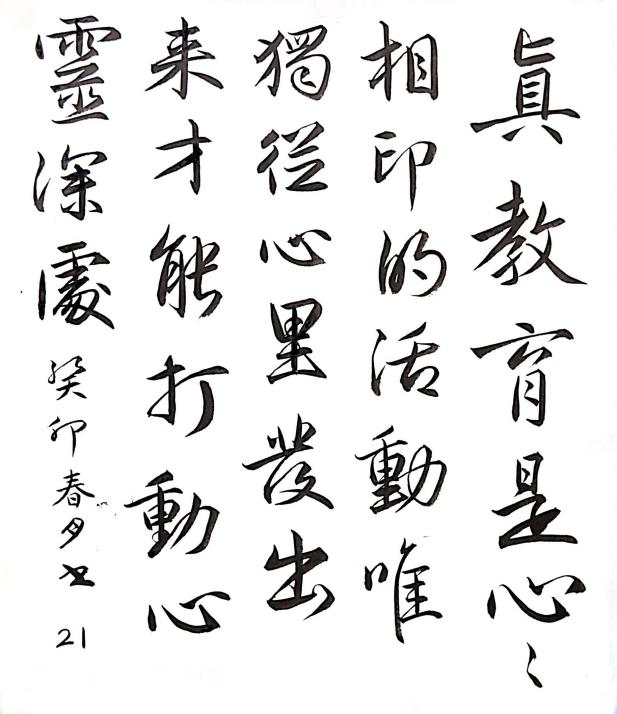 真教育是心〻
相印的活動唯
獨從心里發出
来才能打動心
靈深處癸卯春月书21